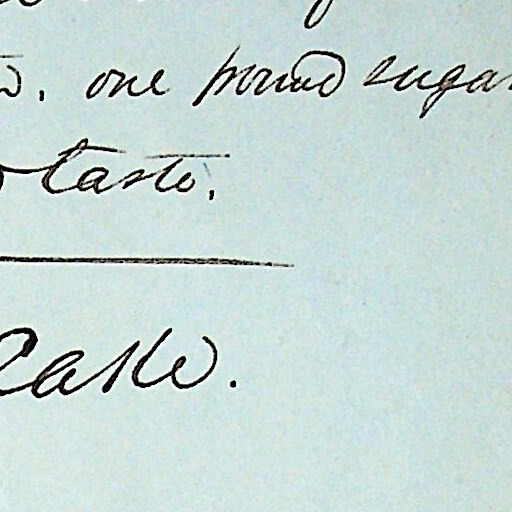 one pound sugar
taste.
Cake.